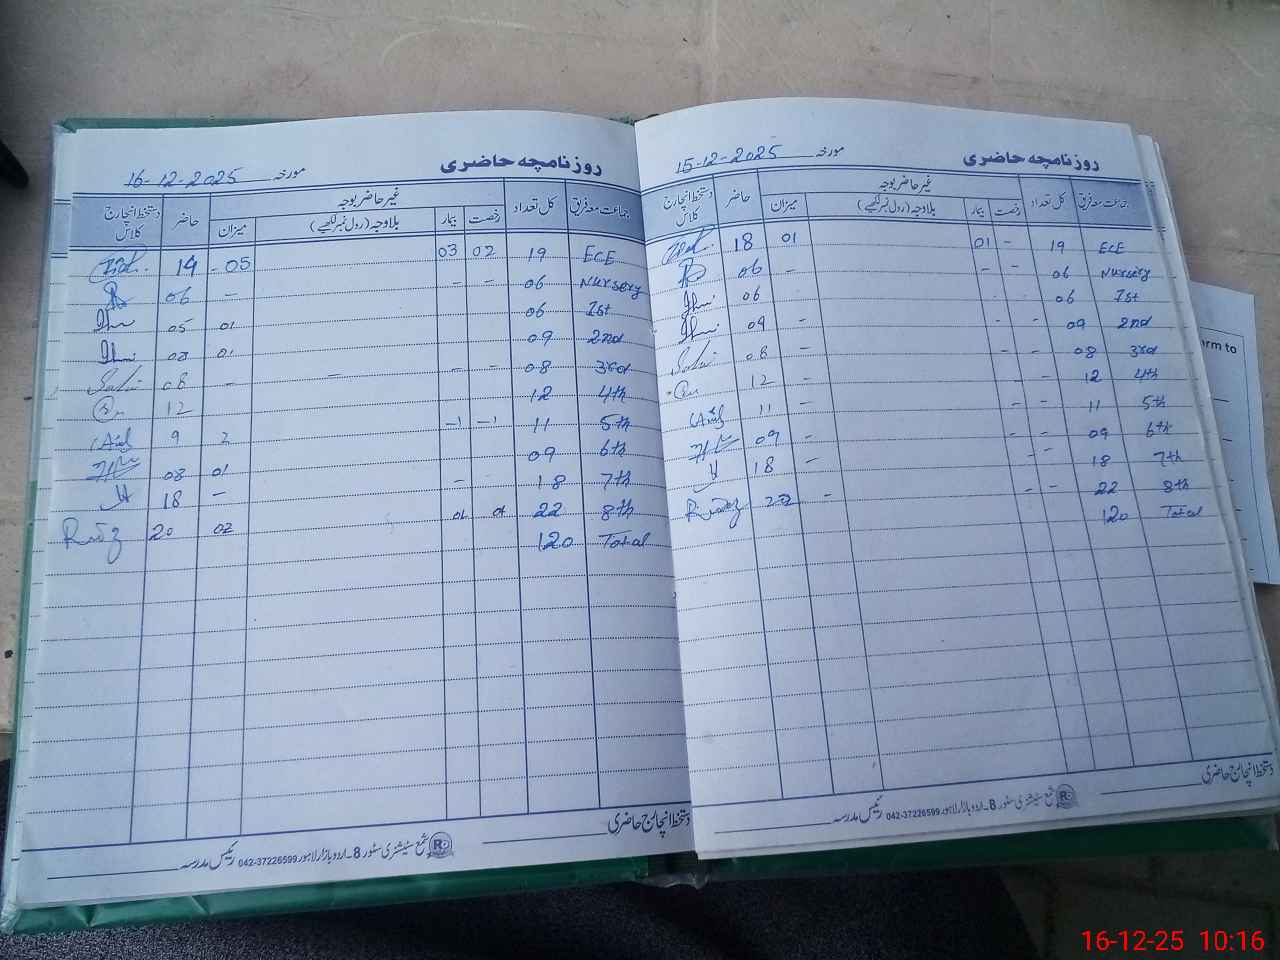 روزنامچہ حاضری
مورخہ 15-12-2025
جماعت معہ فریق کل تعداد غیر حاضر بوجہ حاضر دستخط انچارج کلاس
رخصت بیمار بلاوجہ (رول نمبر لکھیے) میزان
ECE 19 - 01 01 18
Nursery 06 - - - 06
1st 06 - 06
2nd 09 - - - 09
3rd 08 - - - 08
4th 12 - - - 12
5th 11 - - - 11
6th 09 - - - 09
7th 18 - - - 18
8th 22 - - - 22
Total 120
دستخط انچارج حاضری
شمع سٹیشنری سٹور 8۔اردو بازار لاہور 042-37226599 رئیس مدرسہ
روزنامچہ حاضری
مورخہ 16-12-2025
جماعت معہ فریق کل تعداد غیر حاضر بوجہ حاضر دستخط انچارج کلاس
رخصت بیمار بلاوجہ (رول نمبر لکھیے) میزان
ECE 19 02 03 - 05 14
Nursery 06 - - - 06
1st 06 01 05
2nd 09 01 08
3rd 08 - - - - 08
4th 12 12
5th 11 -1 -1 2 9
6th 09 01 08
7th 18 - - 18
8th 22 01 01 02 20
Total 120
دستخط انچارج حاضری
شمع سٹیشنری سٹور 8۔اردو بازار لاہور 042-37226599 رئیس مدرسہ
rm to
16-12-25 10:16